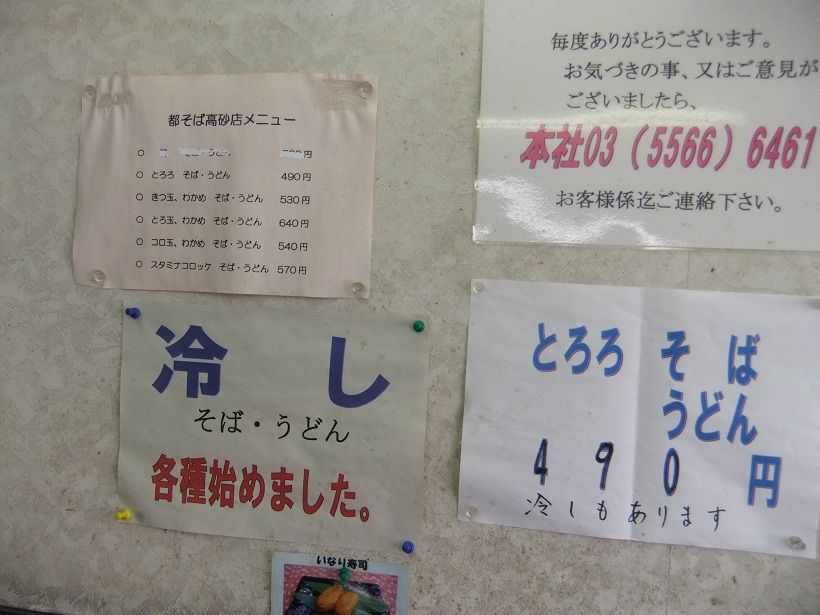 都そば高砂店メニュー
○ そば・うどん 円
○ とろろ そば・うどん 490円
○ きつ玉、わかめ そば・うどん 530円
○ とろ玉、わかめ そば・うどん 640円
○ コロ玉、わかめ そば・うどん 540円
○ スタミナコロッケ そば・うどん 570円
毎度ありがとうございます。
お気づきの事、又はご意見が
ございましたら、
本社03（5566）6461
お客様係迄ご連絡下さい。
冷し
そば・うどん
各種始めました。
とろろ そば
うどん
490円
冷しもあります
いなり寿司